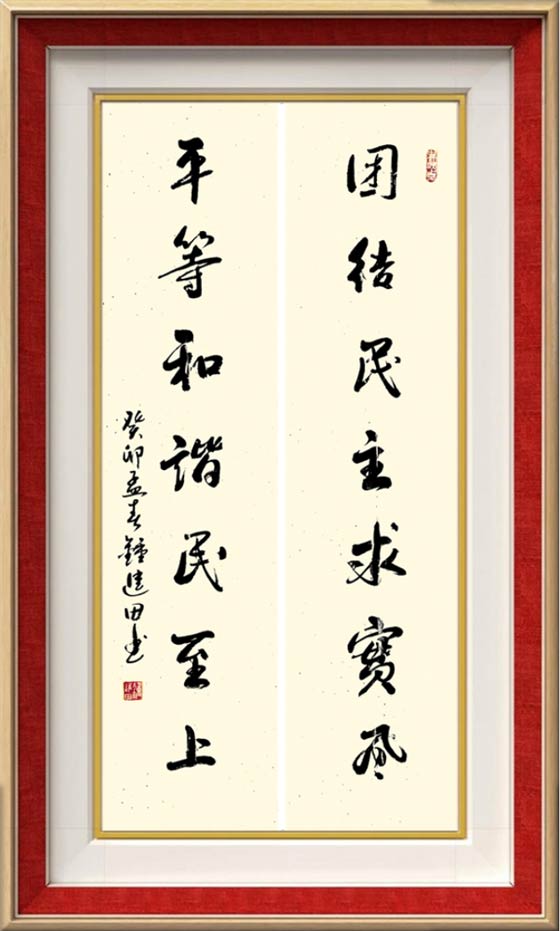 团结民主求實风
平等和谐民至上
癸卯孟春鐘進田书